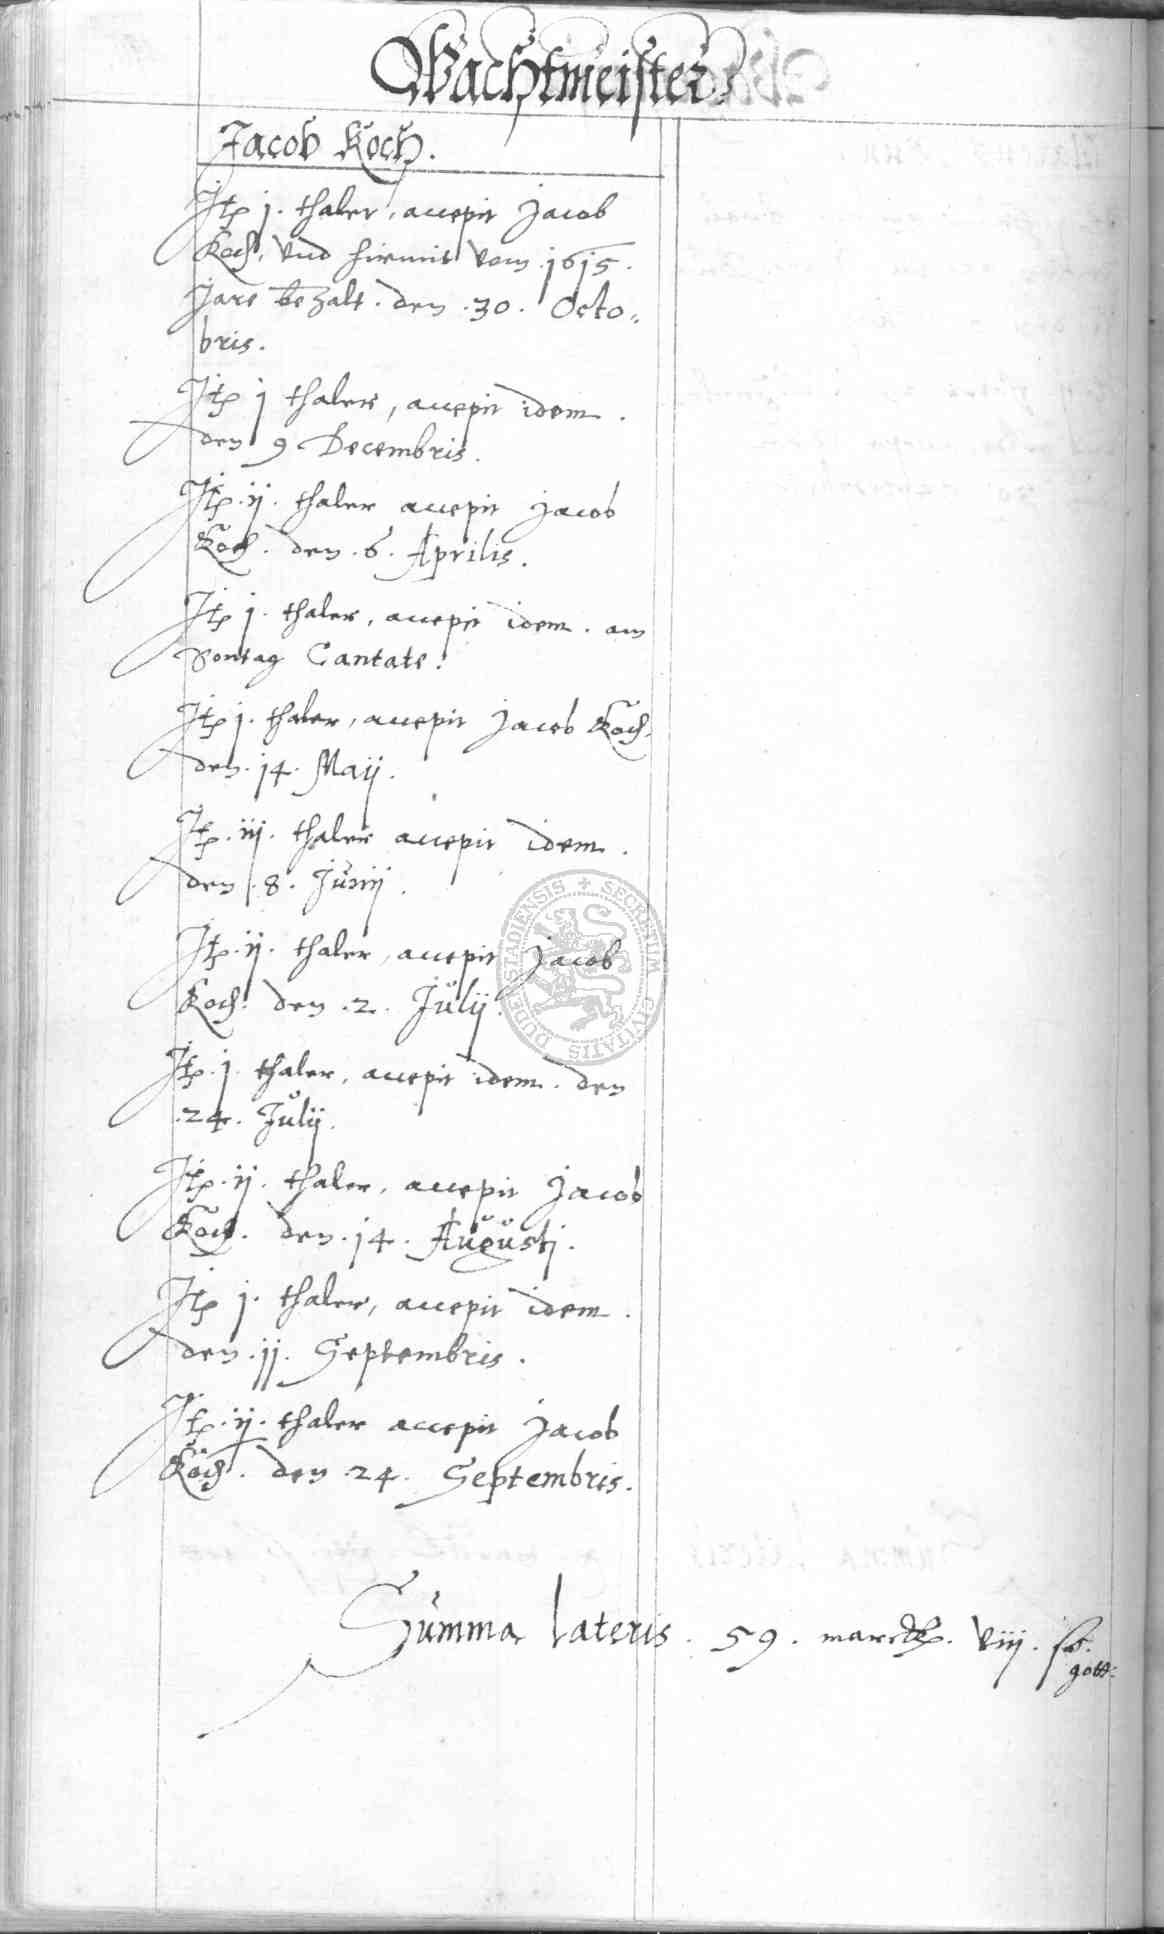 Wachtmeister.
Jacob Koch.
Itp j. thaler, accepit Jacob
Koch, vnd hirmit vom .1615.
Jare bezalt. den .30. Octo=
bris.
Itp j thaler, accepit idem.
den 9 Decembris.
Itp .ij. thaler accepit Jacob
Koch. den .6. Aprilis.
Itp j. thaler, accepit idem. am
Sontag Cantate.
Itp j. thaler, accepit Jacob Koch.
den .14. Maij.
Itp .iij. thaler accepit idem.
den .8. Junij.
Itp .ij. thaler, accepit Jacob
Koch. den .2. Julij.
Itp .j. thaler, accepit idem. den
.24. Julij.
Itp .ij. thaler, accepit Jacob
Koch. den .14. Augusti.
Itp j. thaler, accepit idem.
den .11. Septembris.
Itp .ij. thaler accepit Jacob
Koch. den .24. Septembris.
Summa lateris. 59. marck. viij. sol.
gott=
SECRETUM CIVITATIS DUDERSTADIENSIS